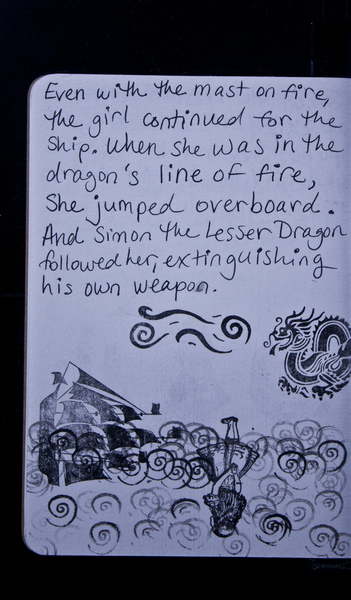 Even with the mast on fire,
the girl continued for the
ship. When she was in the
dragon's line of fire,
She jumped overboard.
And Simon the Lesser Dragon
followed her, extinguishing
his own weapon.